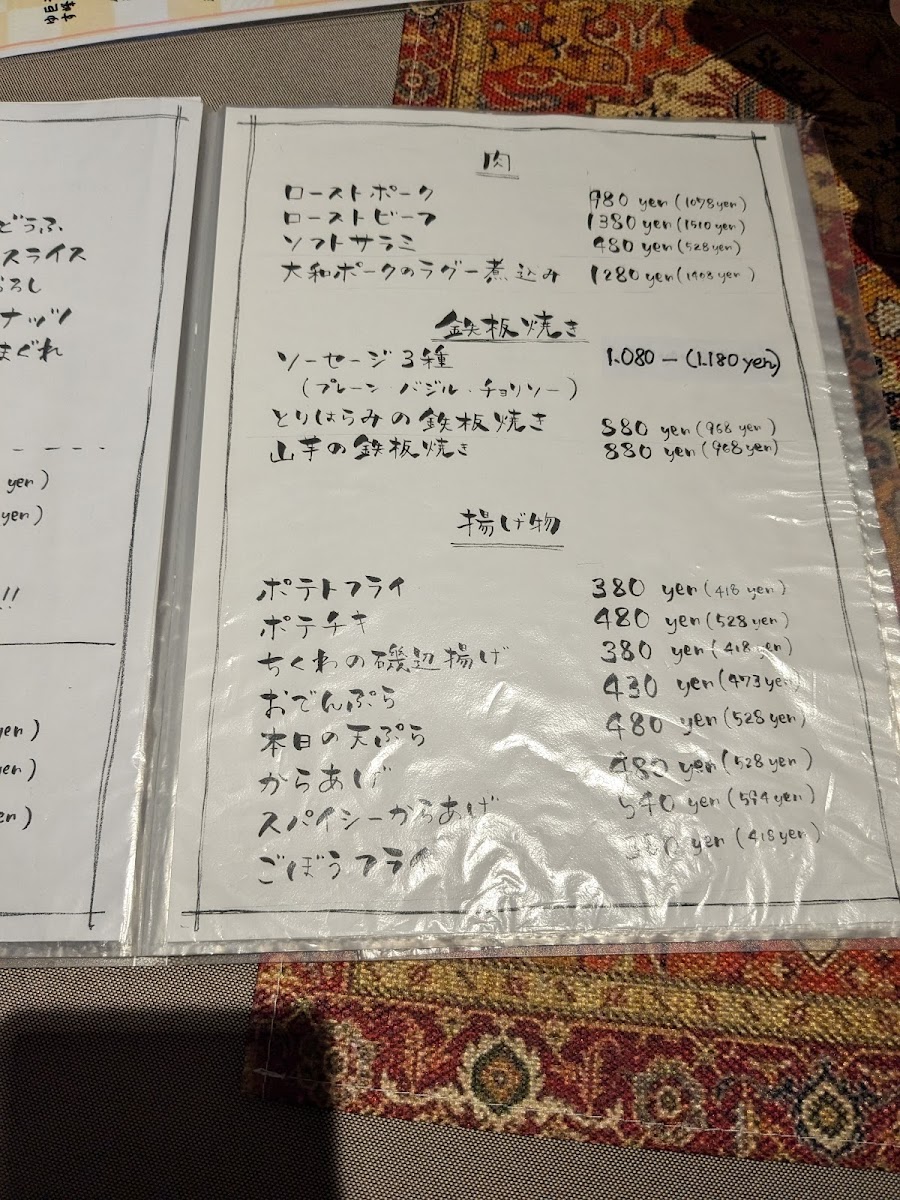 どうふ
スライス
おろし
ナッツ
まぐれ
yen)
yen)
!!
yen)
yen)
en)
肉
ローストポーク 980 yen (1078yen)
ローストビーフ 1380 yen (1510yen)
ソフトサラミ 480 yen (528yen)
大和ポークのラグー煮込み 1280 yen (1408yen)
鉄板焼き
ソーセージ3種 1.080 - (1.180yen)
(プレーン・バジル・チョリソー)
とりはらみの鉄板焼き 880 yen (968 yen)
山芋の鉄板焼き 880 yen (968yen)
揚げ物
ポテトフライ 380 yen (418 yen)
ポテチキ 480 yen (528yen)
ちくわの磯辺揚げ 380 yen (418yen)
おでんぷら 430 yen (473yen)
本日の天ぷら 480 yen (528yen)
からあげ 480 yen (528yen)
スパイシーからあげ 540 yen (594yen)
ごぼうフライ 380 yen (418yen)